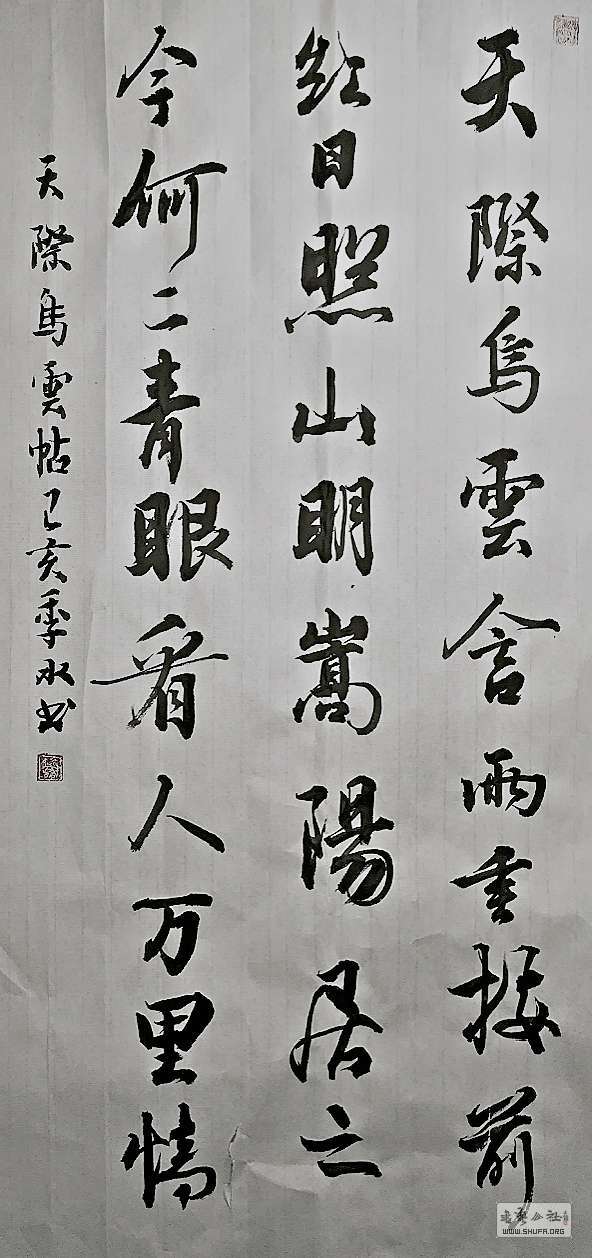 天際烏雲含雨重樓前
紅日照山明嵩陽居士
今何在青眼看人万里情
天際烏雲帖己亥季书
WWW.SHUFA.ORG